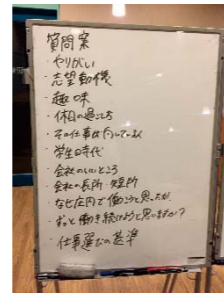 質問案
・やりがい
・志望動機
・趣味
・休日の過ごし方
・その仕事は向いている
・学生時代
・会社のいいところ
・会社の長所・短所
・なぜ庄内で働こうと思ったか
・ずっと働き続けようと思いますか?
・仕事選びの基準